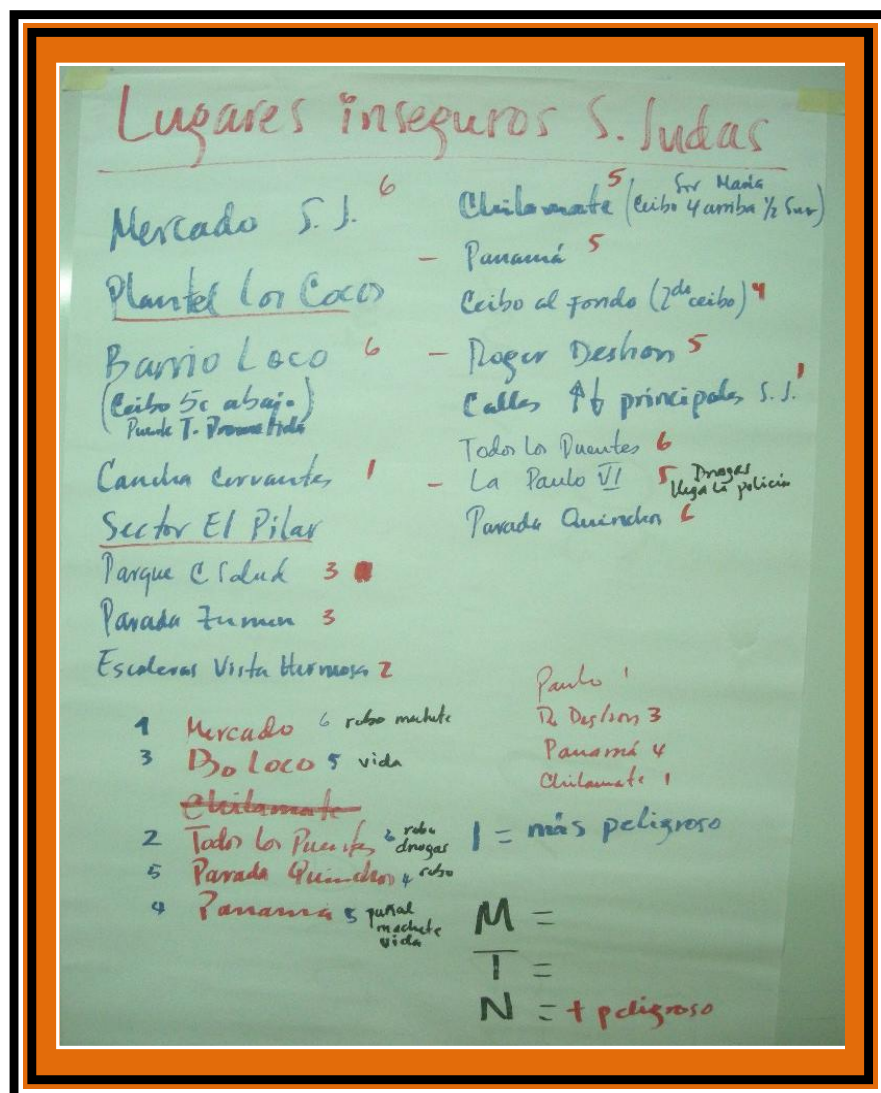 Lugares inseguros S. Judas
Mercado S. J. 6
Plantel Los Cocos
Barrio Loco 6
(Ceibo 5c abajo)
Puente T. Prometida
Cancha Cervantes 1
Sector El Pilar
Parque C Salud 3
Parada Zumen 3
Escaleras Vista Hermosa 2
Chilamate 5 (Ceibo 4 arriba 1/2 Sur)
Sor María
– Panamá 5
Ceibo al fondo (2do ceibo) 4
– Roger Deshon 5
Calles ↑↓ principales S. J. 1
Todos Los Puentes 6
– La Paulo VI 5 Drogas
llega la policía
Parada Quinchos 6
1 Mercado 6 robo machete
3 Bo Loco 5 vida
Chilamate
2 Todos los Puentes 6 robo
drogas
5 Parada Quinchos 4 robo
4 Panamá 5 puñal
machete
vida
Paulo 1
R. Deshon 3
Panamá 4
Chilamate 1
1 = más peligroso
M =
T =
N = + peligroso